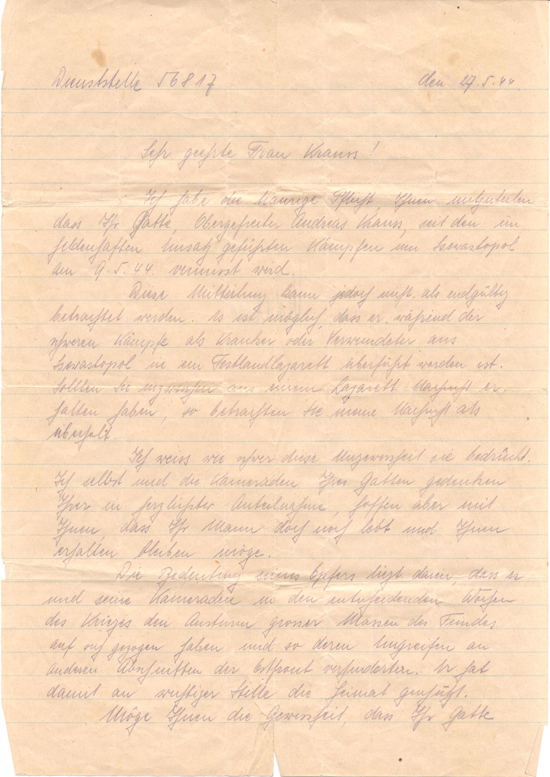 Dienststelle 56817 den 27.5.44
Sehr geehrte Frau Krauss!
Ich habe die traurige Pflicht Ihnen mitzuteilen
dass Ihr Gatte, Obergefreiter Andreas Krauss, seit den im
heldenhaften Einsatz geführten Kämpfen um Sewastopol
am 9.5.44 vermisst wird.
Diese Mitteilung kann jedoch nicht als endgültig
betrachtet werden. Es ist möglich, dass er während der
schweren Kämpfe als Kranker oder Verwundeter aus
Sewastopol in ein Festlandlazarett überführt worden ist.
Sollten Sie inzwischen aus einem Lazarett Nachricht er
halten haben, so betrachten Sie meine Nachricht als
überholt.
Ich weiss wie schwer diese Ungewissheit sie bedrückt.
Ich selbst und die Kameraden Ihres Gatten gedenken
Ihrer in herzlichster Anteilnahme, hoffen aber mit
Ihnen dass Ihr Mann doch noch lebt und Ihnen
erhalten bleiben möge.
Die Bedeutung seines Opfers liegt darin, dass er
und seine Kameraden in den entscheidenden Wochen
des Krieges den Ansturm grosser Massen des Feindes
auf sich gezogen haben und so deren Eingreifen an
anderen Abschnitten der Ostfront verhinderten. Er hat
damit an wichtiger Stelle die Heimat geschützt.
Möge Ihnen die Gewissheit, dass Ihr Gatte